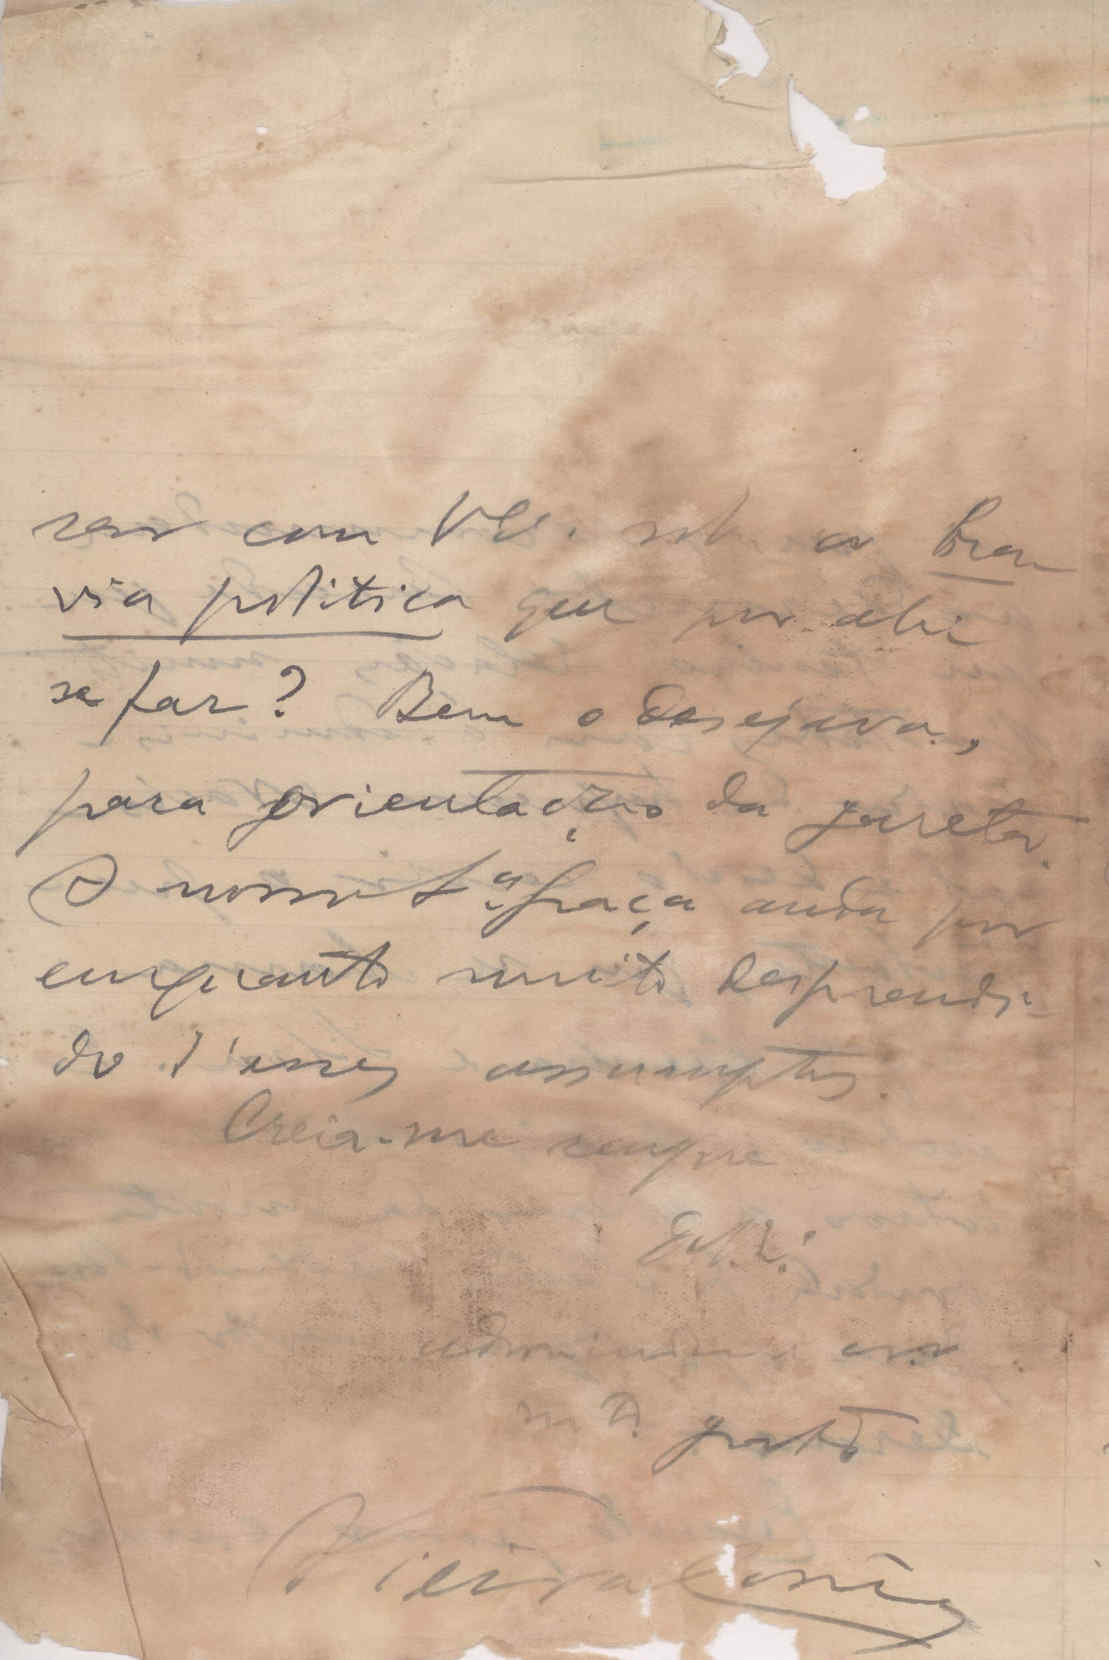 com VEx. sob a bra
via politica que por ahi
se faz? Bem o desejava,
para orientação da gazeta.
O nosso Graça anda por
emquanto muito desprendi-
do d'esses assumptos.
Creia-me sempre
admirador
m.to grato
Vieira